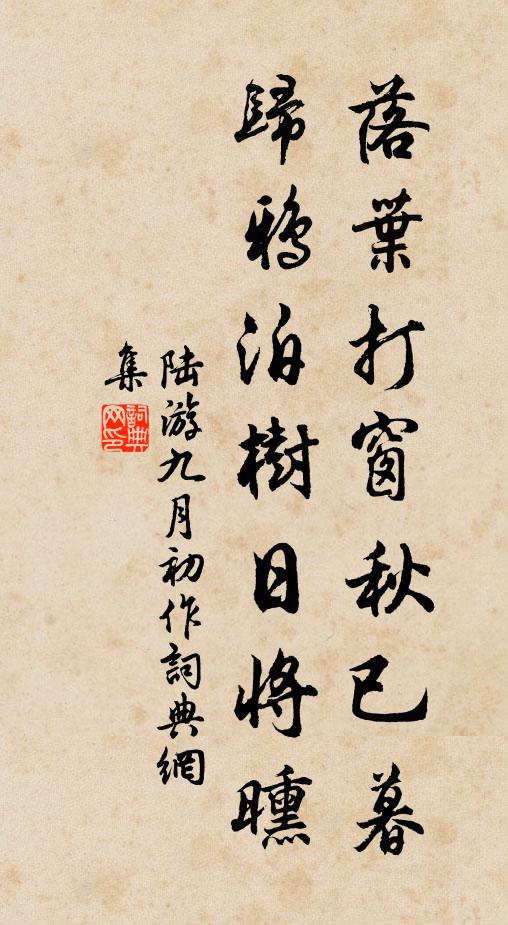 落葉打窗秋已暮
歸鴉泊樹日將曛
陸游九月初作詞典網
集
詞典
网印